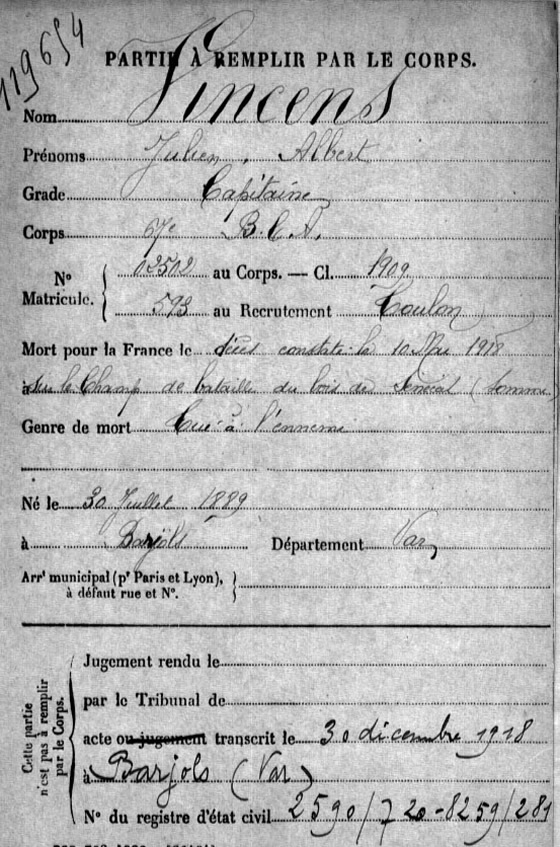 119654
PARTIE À REMPLIR PAR LE CORPS.
Nom Vincens
Prénoms Julien, Albert
Grade Capitaine
Corps 67e B.C.A.
No Matricule. { 02502 au Corps. — Cl. 1909
593 au Recrutement Toulon
Mort pour la France le décès constaté le 10 Mai 1918
à sur le Champ de bataille du bois de Sénécat (Somme)
Genre de mort Tué à l'ennemi
Né le 30 Juillet 1889
à Barjols Département Var
Arrt municipal (pr Paris et Lyon), }
à défaut rue et No.
Cette partie n'est pas à remplir par le Corps.
Jugement rendu le
par le Tribunal de
acte ou jugement transcrit le 30 décembre 1918
à Barjols (Var)
No du registre d'état civil 2590/720-8259/281